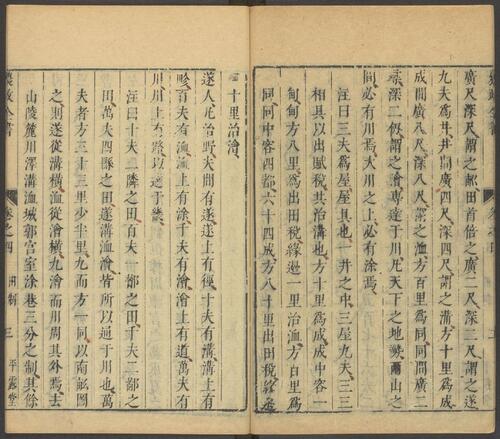 廣尺深尺謂之畎田首倍之廣二尺深二尺謂之遂
九夫爲井井間廣四尺深四尺謂之溝方十里爲成
成間廣八尺深八尺謂之洫方百里爲同同間廣二
尋深二仞謂之澮專達于川凡天下之地勢兩山之
間必有川焉大川之上必有涂焉
注曰三夫爲屋屋具也一井之中三屋九夫三三
相具以出賦稅共治溝也方十里爲成成中容一
甸甸方八里爲出田稅緣邊一里治洫方百里爲
同同中容四都六十四成方八十里出田稅緣邊
十里治澮
遂人凡治野夫間有遂遂上有徑十夫有溝溝上有
畛百夫有洫洫上有涂千夫有澮澮上有道萬夫有
川川上有路以達于畿
注曰十夫二鄰之田百夫一酇之田千夫二鄙之
田萬夫四縣之田遂溝洫澮皆所以通于川也萬
夫者方三十三里少半里九而方一同以南畝圖
之則遂從溝橫洫從澮橫九澮而川周其外焉去
山陵麓川澤溝洫城郭宮室涂巷三分之制其餘
農政全書 卷之四 田制 三 平露堂